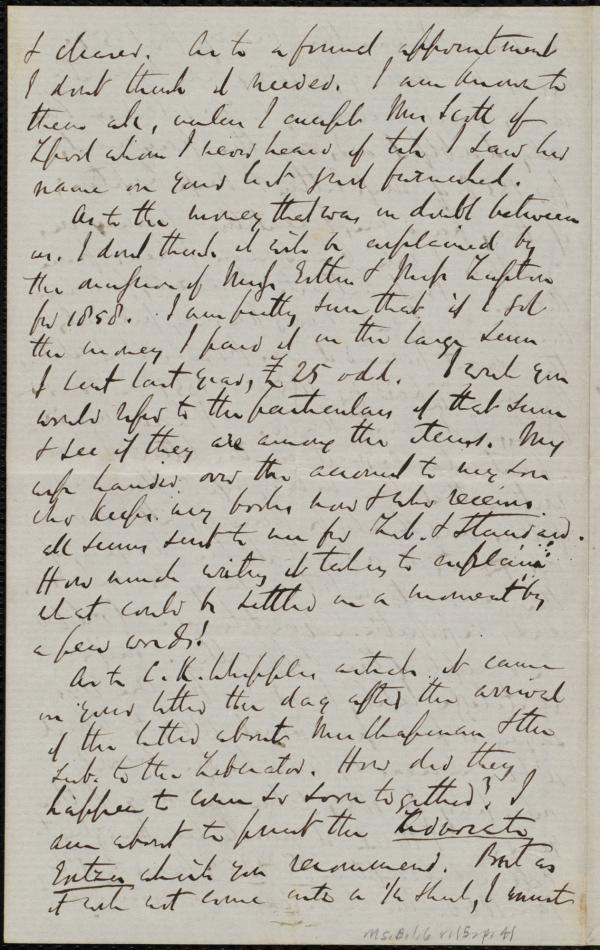 & cleared. As to a formal appointment
I dont think it needed. I am known to
them all, unless I except Mrs Scott of
whom I never heard of till I saw her
name on your list just furnished.
As to the money that was in doubt between
us. I dont think it will be explained by
the omission of Miss & Miss Lupton
for 1858. I am pretty sure that if I got
the money I paid it in the large sum
I sent last year, £25 odd. I wish you
would refer to the particulars of that sum
& see if they are among the items. My
wife handed over the account to my son
who keeps my books now & who receives
all sums sent to me for Lib. & Standard.
How much writing it takes to explain
what could be settled in a moment by
a few words!
As to C. K. Whipples article it came
in your letter the day after the arrival
of the letter about Mrs Chapman & the
Sub. to the Liberator. How did they
happen to come so soon together? I
am about to print the Advocate
Extra which you recommend. But as
it will not come into a 1/4 sheet, I must
Ms.B.1.6 v.